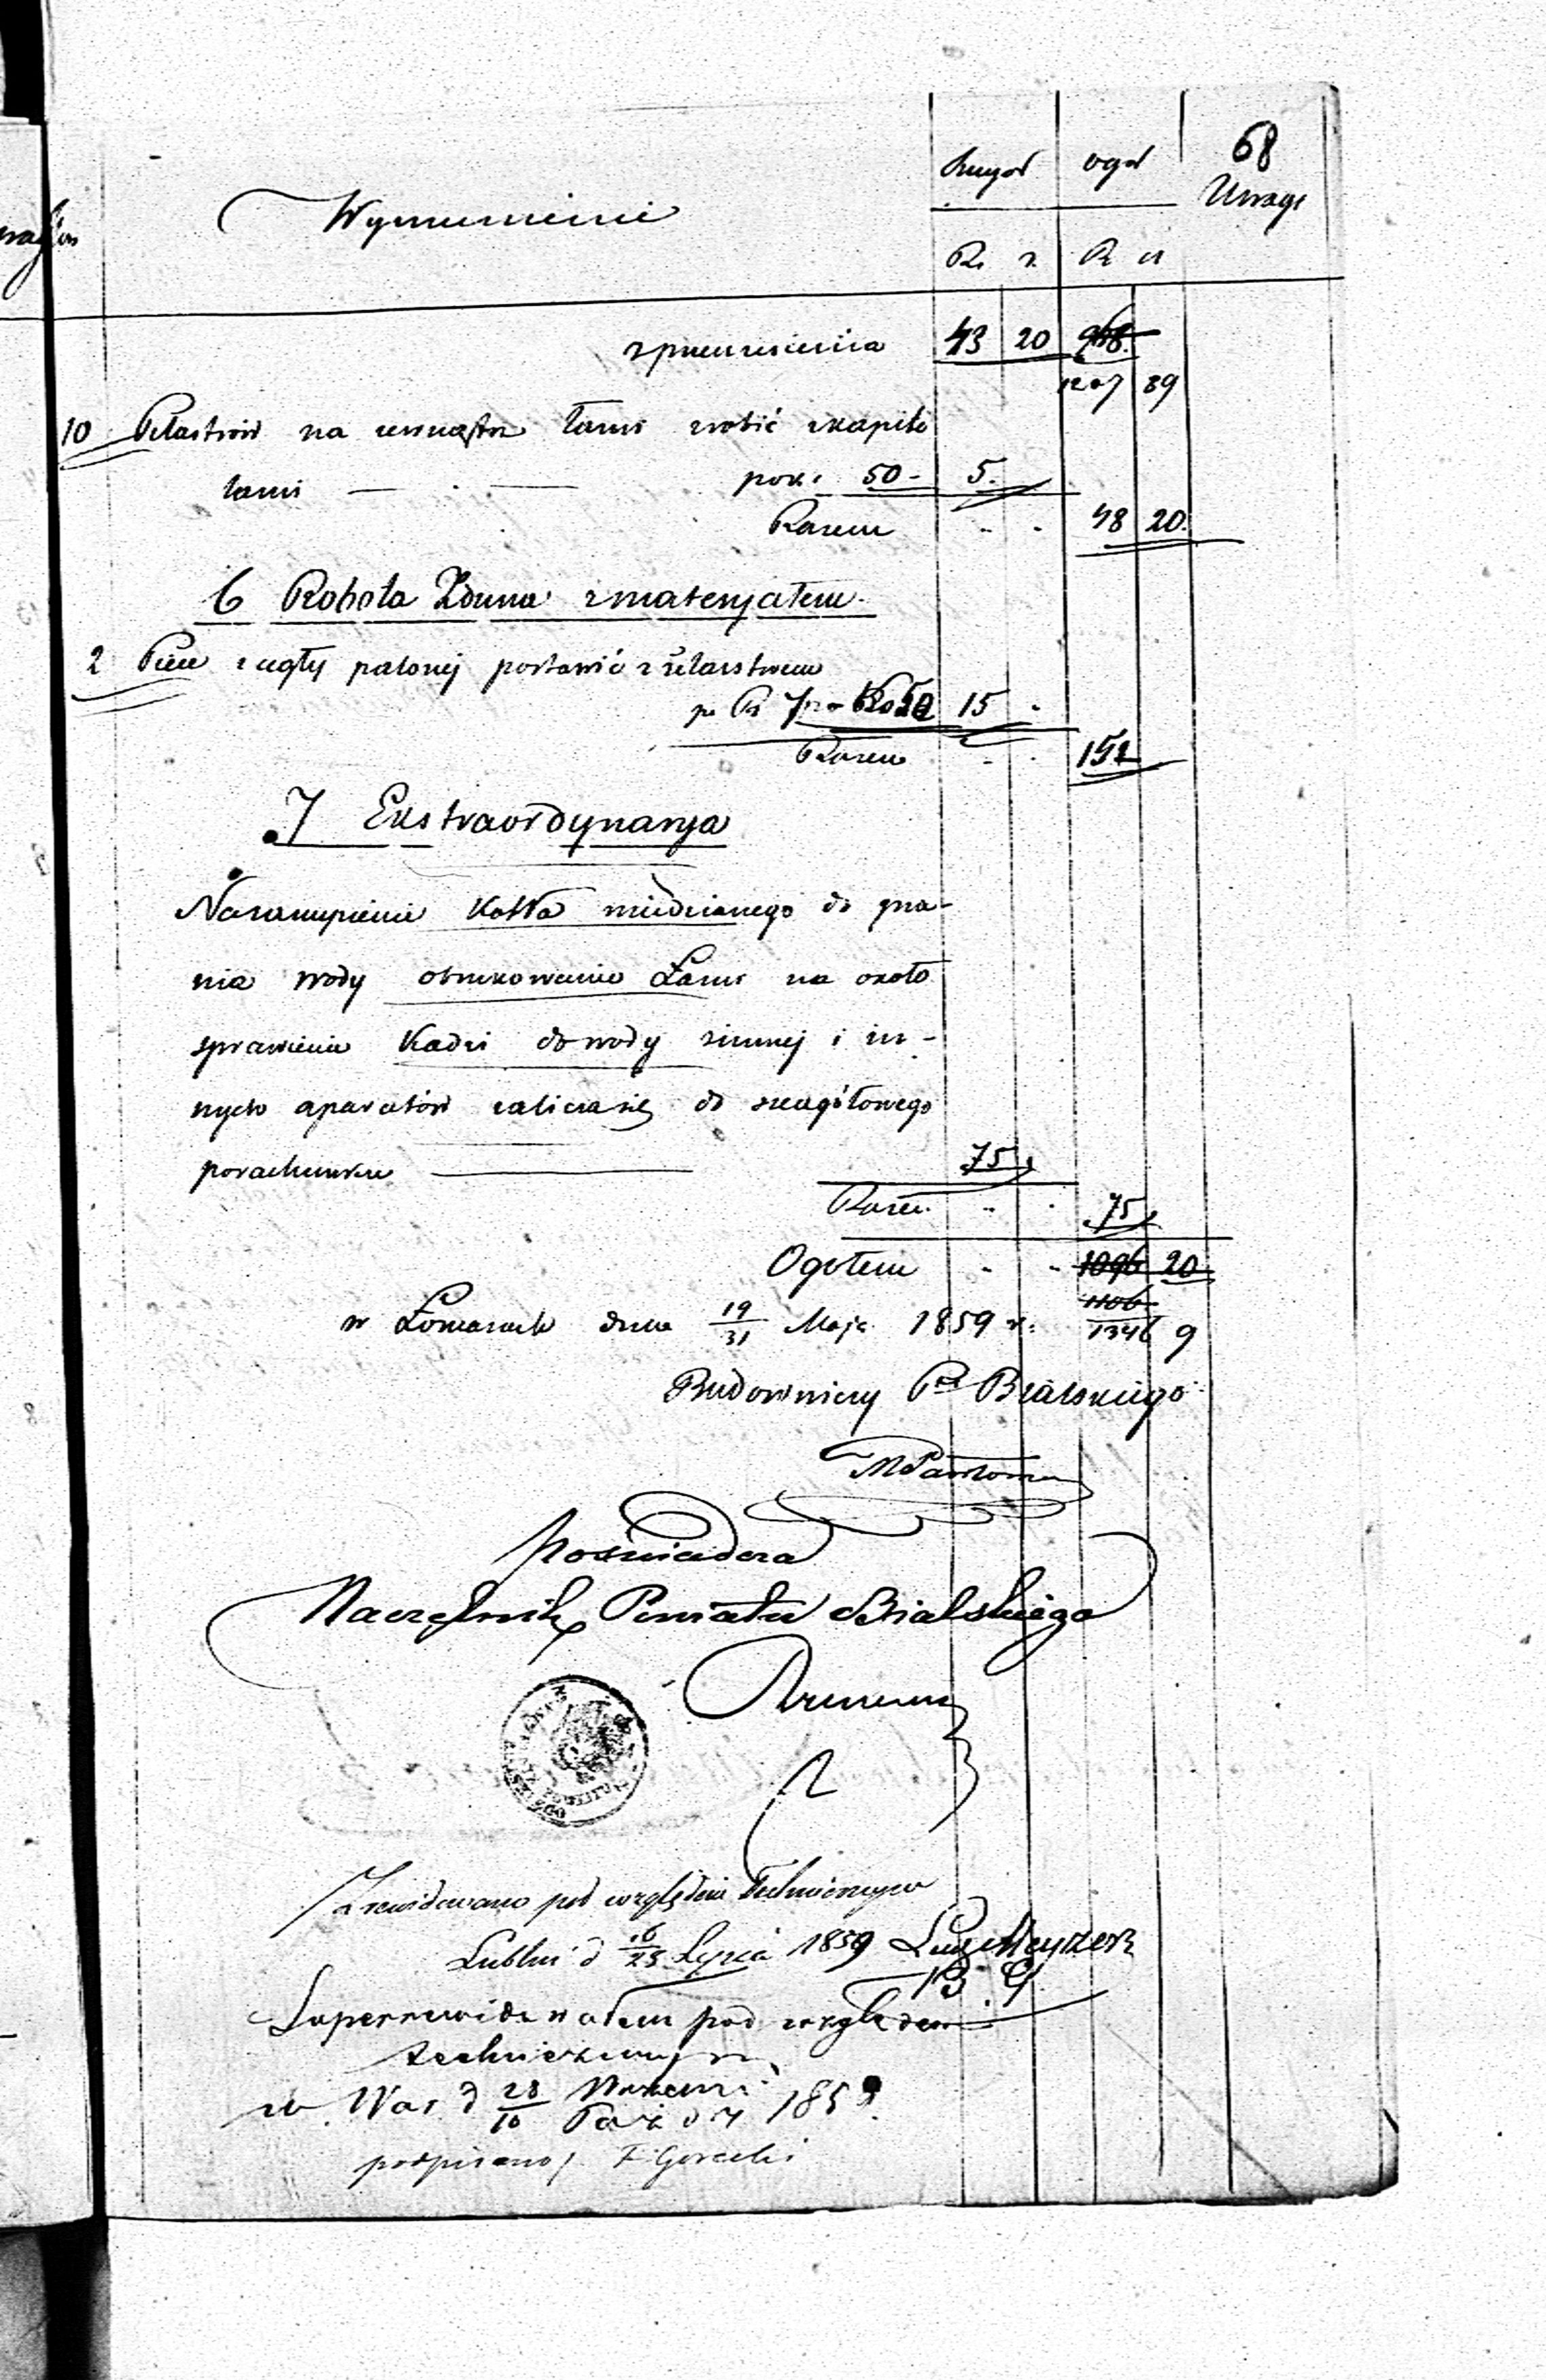 68
Szczegół ogół Uwagi
Wymienienie
R. k. R k
z przeniesienia 43 20 968.
1207 89
10 Pilastrów na zewnątrz Łazni zrobić z kapite
lami — . — po k. 50 - 5.
Razem - - 48 20.
6 Robota Zduna z materjałem.
2 Piece z cegły palonej postawić z żelastwem
po Rs 7 Ko 50 15 -
Razem - . 15
7 Ekstraordynarja
Na zakupienie Kotła miedzianego do grza-
nia wody obrukowanie Łazni na około
sprawienie Kadzi do wody zimnej i in-
nych aparatów zalicza się do szczegółowego
porachunku — 75
Razem - . 75
Ogółem - - 1096 20
1106
w Łomazach dnia 19/31 Maja 1859 r. 1346 9
Budowniczy Ptu Bialskiego
poświadcza
Naczelnik Powiatu Bialskiego
Zrewidowano pod względem Technicznym
Lublin d 16/28 Lipca 1859
B G
Superrewidowałem pod względem
technicznym
w War. d 28/10 Wrześni/Paźdz 1859.
podpisano / F Gorecki